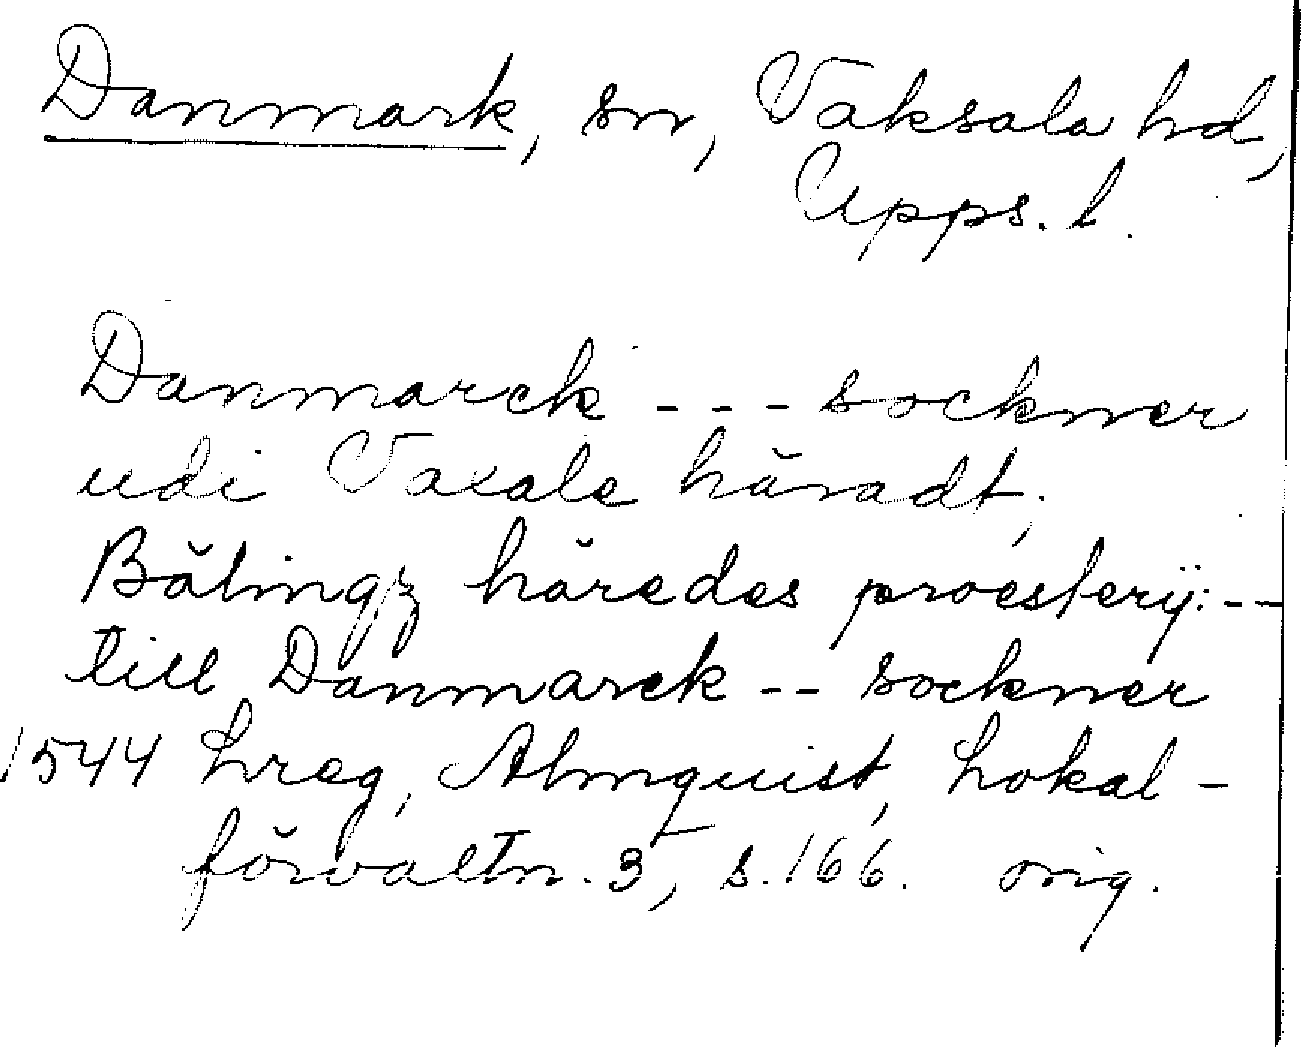 Danmark, sn, Vaksala hd,
Upps. l.
Danmarck --- sockner
udi Vaxale häradt;
Bälingz häredes proesterij: --
till Danmarck -- sockner
1544 hreg, Almquist, Lokal-
förvaltn. 3, s. 166. orig.